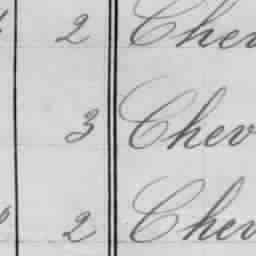 2 Chev
3 Chev
2 Chev